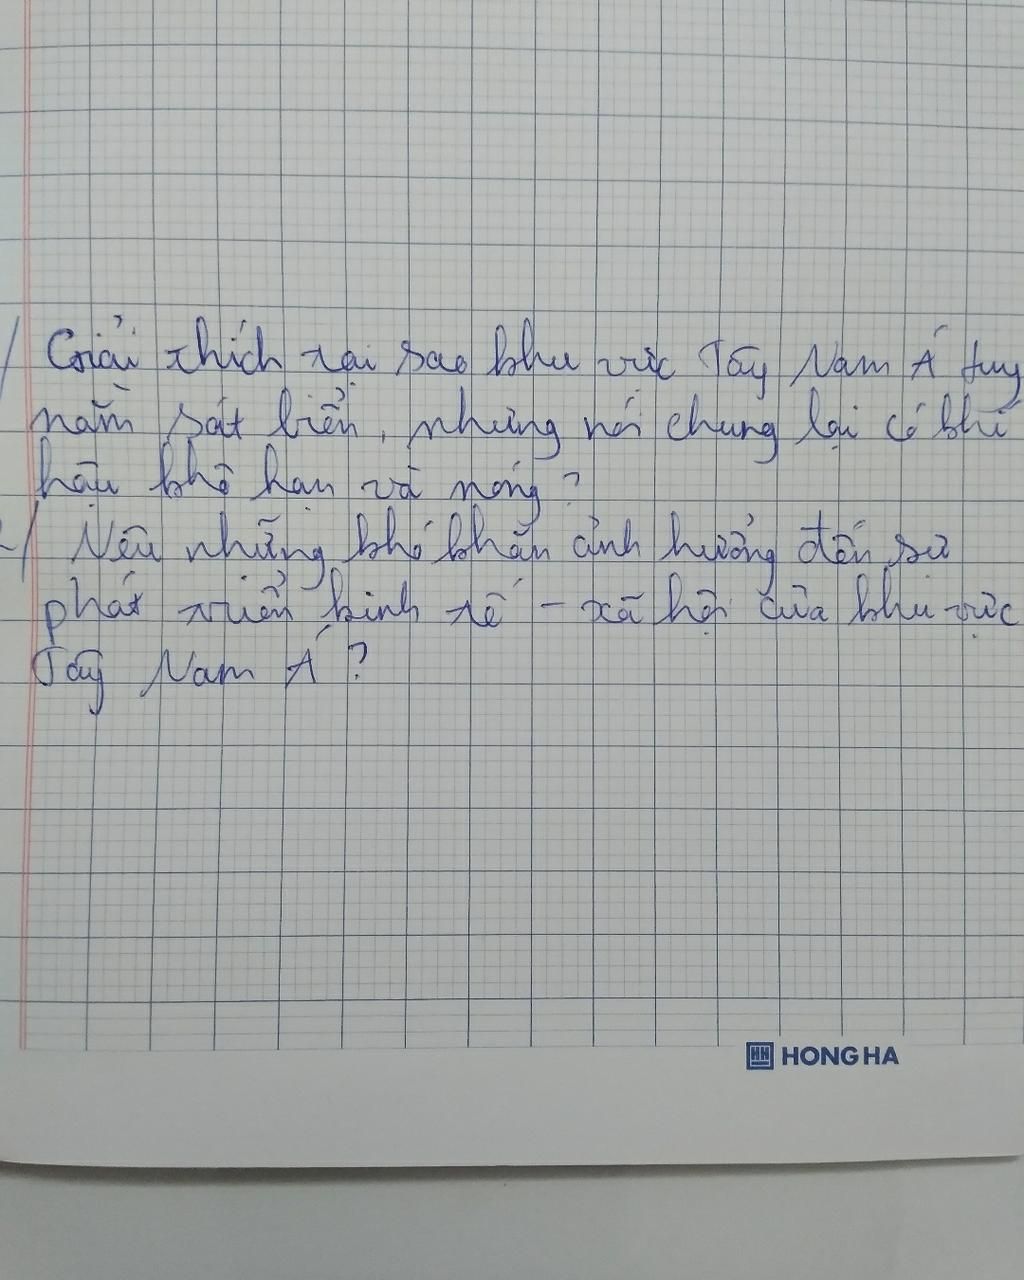 1/ Giải thích tại sao khu vực Tây Nam Á tuy
nằm sát biển, nhưng nói chung lại có khí
hậu khô hạn và nóng?
2/ Nêu những khó khăn ảnh hưởng đến sự
phát triển kinh tế - xã hội của khu vực
Tây Nam Á?
HH HONG HA